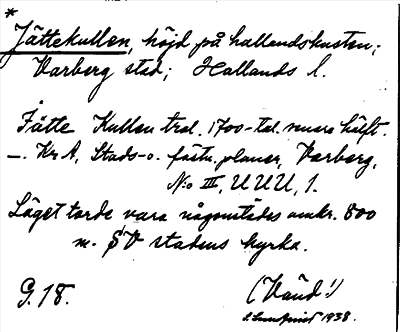 *
Jättekullen, höjd på hallandskusten;
Varberg stad; Hallands l.
Jätte Kullen trol. 1700-tal. senare hälft.
–. Kr A, Stads- o. fästn. planer, Varberg,
N:o III, UUU, 1.
Läget torde vara någonstädes omkr. 800
m. SV stadens kyrka.
G. 18.
(Vänd!)
Lundqvist 1938.